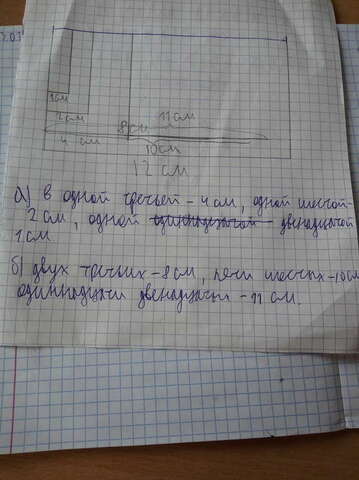 1 см
2 см
11 см
8 см
4 см
10 см
12 см
а) в одной третьей - 4 см, одной шестой -
2 см, одной одиннадцатой двенадцатой
1 см
б) двух третьих - 8 см, пяти шестых - 10 см
одиннадцати двенадцатых - 11 см.